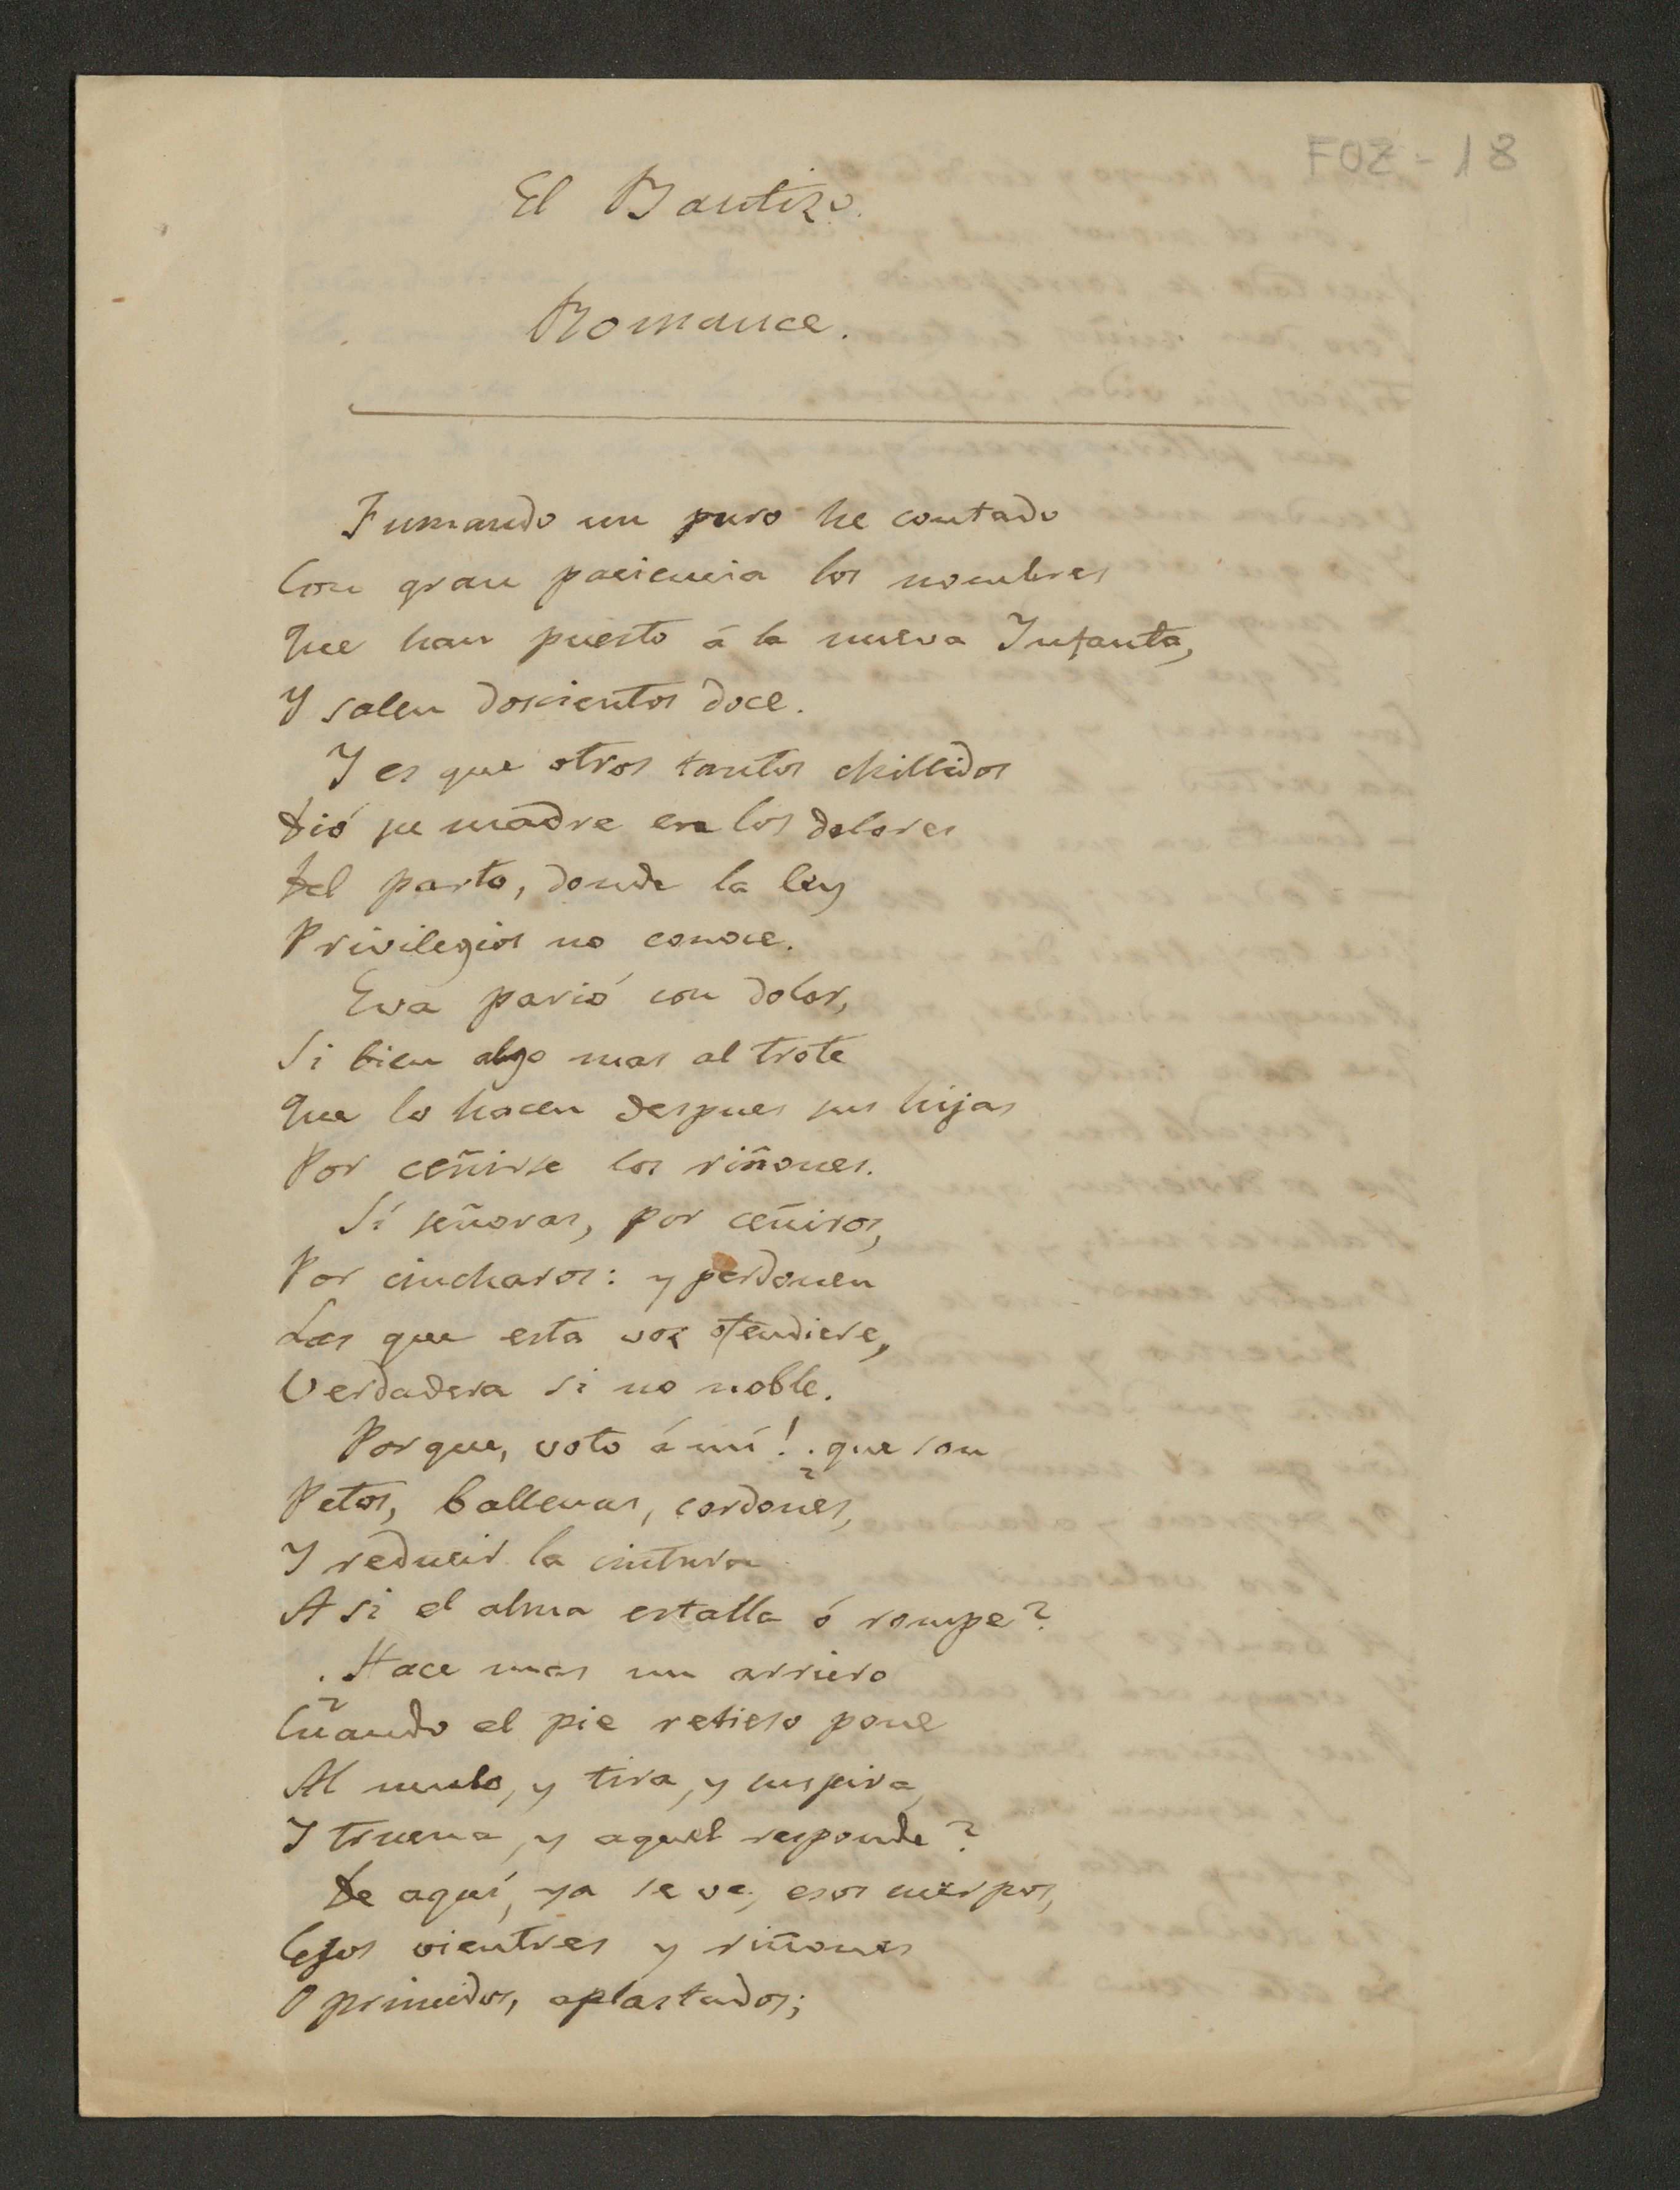 FOZ - 18
El Bautizo.
Romance.
Fumando un puro he contado
Con gran paciencia los nombres
Que han puesto á la nueva Infanta,
Y salen doscientos doce.
Y es que otros tantos chillidos
Dió su madre en los dolores
Del parto, donde la ley
Privilegios no conoce.
Eva parió con dolor,
Si bien algo mas al trote
Que lo hacen despues sus hijas
Por ceñirse los riñones.
Sí señoras, por ceñiros,
Por cincharos: y perdonen
Las que esta voz ofendiere,
Verdadera si no noble.
Porque, voto á mí! ¿que son
Petos, ballenas, cordones,
Y reducir la cintura
A si el alma estalla ó rompe?
¿Hace mas un arriero
Cuando el pie retieso pone
Al mulo, y tira, y suspira,
Y truena, y aquel responde?
De aquí, ya se ve, esos cuerpos,
Esos vientres y riñones
Oprimidos, aplastados;